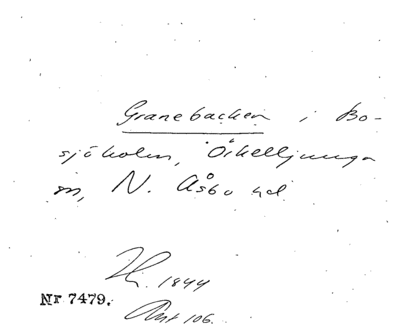 Granebacken i Bo-
sjöholm, Örkelljunga
sn, N. Åsbo hd.
H. 1844
Nr 7479.
Ant 106.